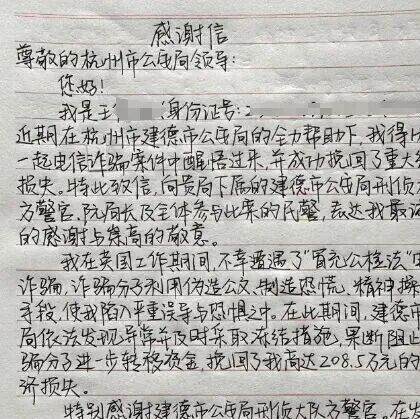 感谢信
尊敬的杭州市公安局领导:
您好!
我是王 身份证号:2
近期在杭州市建德市公安局的全力帮助下,我得以
一起电信诈骗案件中醒悟过来,并成功挽回了重大
损失。特此致信,向贵局下属的建德市公安局刑侦
方警官、阮局长及全体参与此案的民警,表达我最
的感谢与崇高的敬意。
我在英国工作期间,不幸遭遇了"冒充公检法"
诈骗,诈骗分子利用伪造公文、制造恐慌、精神操
手段,使我陷入严重误导与恐惧之中。在此期间,建德市
局依法发现异常并及时采取冻结措施,果断阻止
骗分子进一步转移资金,挽回了我高达208.5万元的
济损失。
特别感谢建德市公安局刑侦大队方警官。在